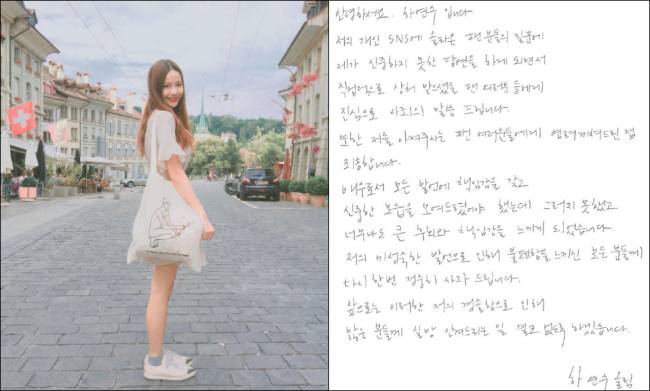 안녕하세요. 하연수 입니다
저의 개인 SNS에 올라온 팬분들의 질문에
제가 신중하지 못한 답변을 하게 되면서
직접적으로 상처 받으셨을 팬 여러분들에게
진심으로 사죄의 말씀 드립니다.
또한 저를 아껴주시는 팬 여러분들에게 염려끼쳐드린 점
죄송합니다.
배우로서 모든 발언에 책임감을 갖고
신중한 모습을 보여드렸어야 했는데 그러지 못했고
너무나도 큰 후회와 책임감을 느끼게 되었습니다.
저의 미성숙한 발언으로 인해 불쾌함을 느끼신 모든 분들께
다시 한번 정중히 사과 드립니다.
앞으로는 이러한 저의 경솔함으로 인해
많은 분들께 실망 안겨드리는 일 결코 없도록 하겠습니다.
하연수 올림